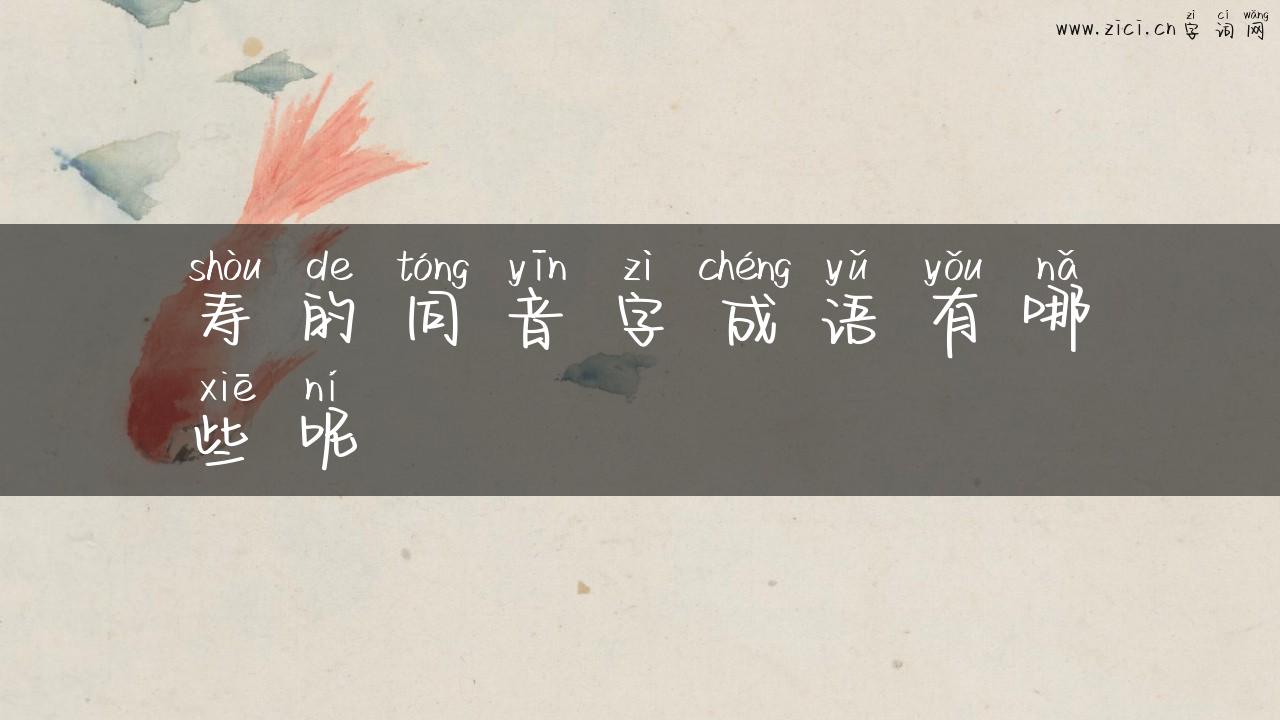 zì cí wǎng
www.zici.cn 字词网
shòu de tóng yīn zì chéng yǔ yǒu nǎ
寿的同音字成语有哪
xiē ní
些呢